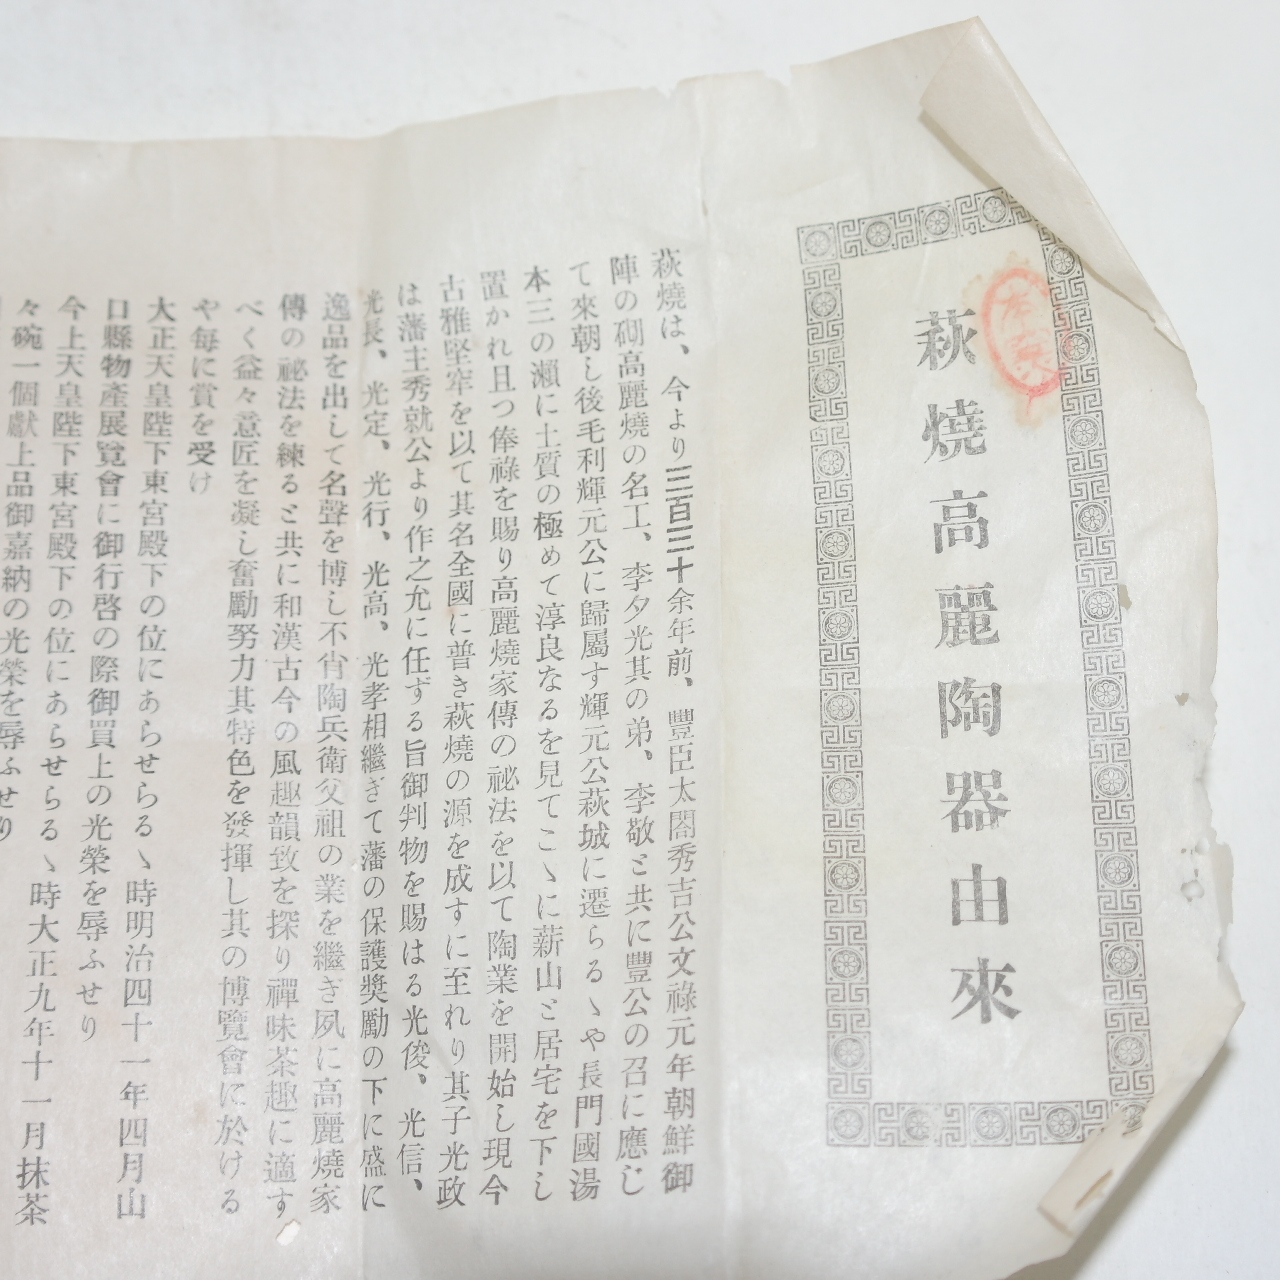 萩燒高麗陶器由來
本家
萩燒は、今より三百三十余年前、豐臣太閤秀吉公文祿元年朝鮮御
陣の砌高麗燒の名工、李夕光其の弟、李敬と共に豐公の召に應じ
て來朝し後毛利輝元公に歸屬す輝元公萩城に遷らるゝや長門國湯
本三の瀬に土質の極めて淳良なるを見てこゝに薪山と居宅を下し
置かれ且つ俸祿を賜り高麗燒家傳の祕法を以て陶業を開始し現今
古雅堅牢を以て其名全國に普き萩燒の源を成すに至れり其子光政
は藩主秀就公より作之允に任ずる旨御判物を賜はる光俊、光信、
光長、光定、光行、光高、光孝相繼ぎて藩の保護奬勵の下に盛に
逸品を出して名聲を博し不肖陶兵衛父祖の業を繼ぎ夙に高麗燒家
傳の祕法を練ると共に和漢古今の風趣韻致を探り禪味茶趣に適す
べく益々意匠を凝し奮勵努力其特色を發揮し其の博覽會に於ける
や毎に賞を受け
大正天皇陛下東宮殿下の位にあらせらるゝ時明治四十一年四月山
口縣物產展覽會に御行啓の際御買上の光榮を辱ふせり
今上天皇陛下東宮殿下の位にあらせらるゝ時大正九年十一月抹茶
々碗一個獻上品御嘉納の光榮を辱ふせり